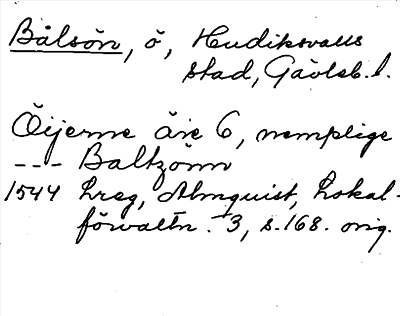 Bålsön, ö, Hudiksvalls
stad, Gävleb. l.
Öijerne äre 6, nemplige
--- Baltzönn
1544 hreg, Almquist, Lokal-
förvaltn. 3, s. 168. orig.